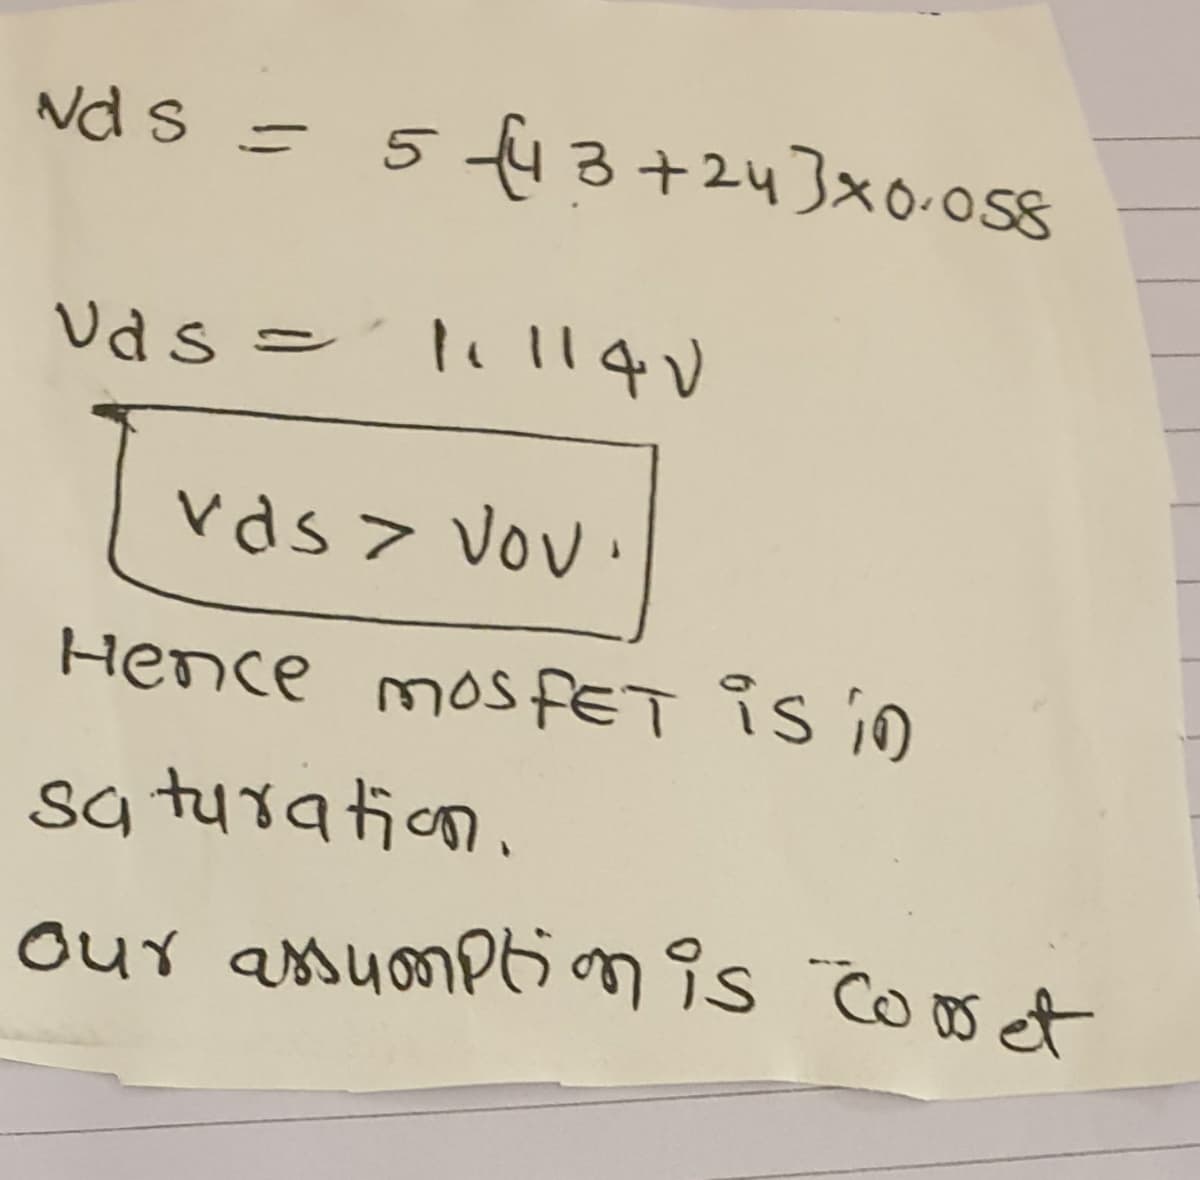 Vds = 5 -{43+24}×0.058
Vds = 1.114V
Vds > Vov.
Hence mosfET is in
saturation.
our assumption is corret